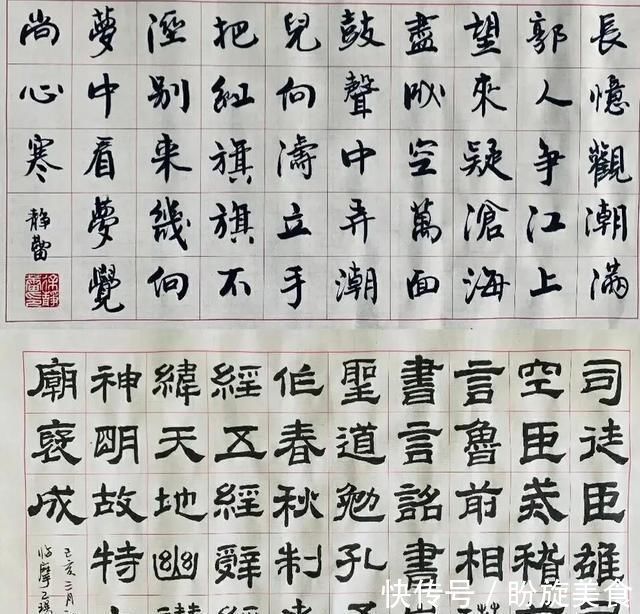 長憶觀潮滿
郭人爭江上
望來疑滄海
盡成空萬面
鼓聲中弄潮
兒向濤立手
把紅旗旗不
溼别來幾向
夢中看夢覺
尚心寒
静蕾
司徒臣雄
空臣戒稽
言魯前相
書言詔書
聖道勉孔
作春秋制
經五經辭
緯天地幽
神明故特
廟褒成
己亥三月
临摩乙瑛
快传号 / 盼旋美食